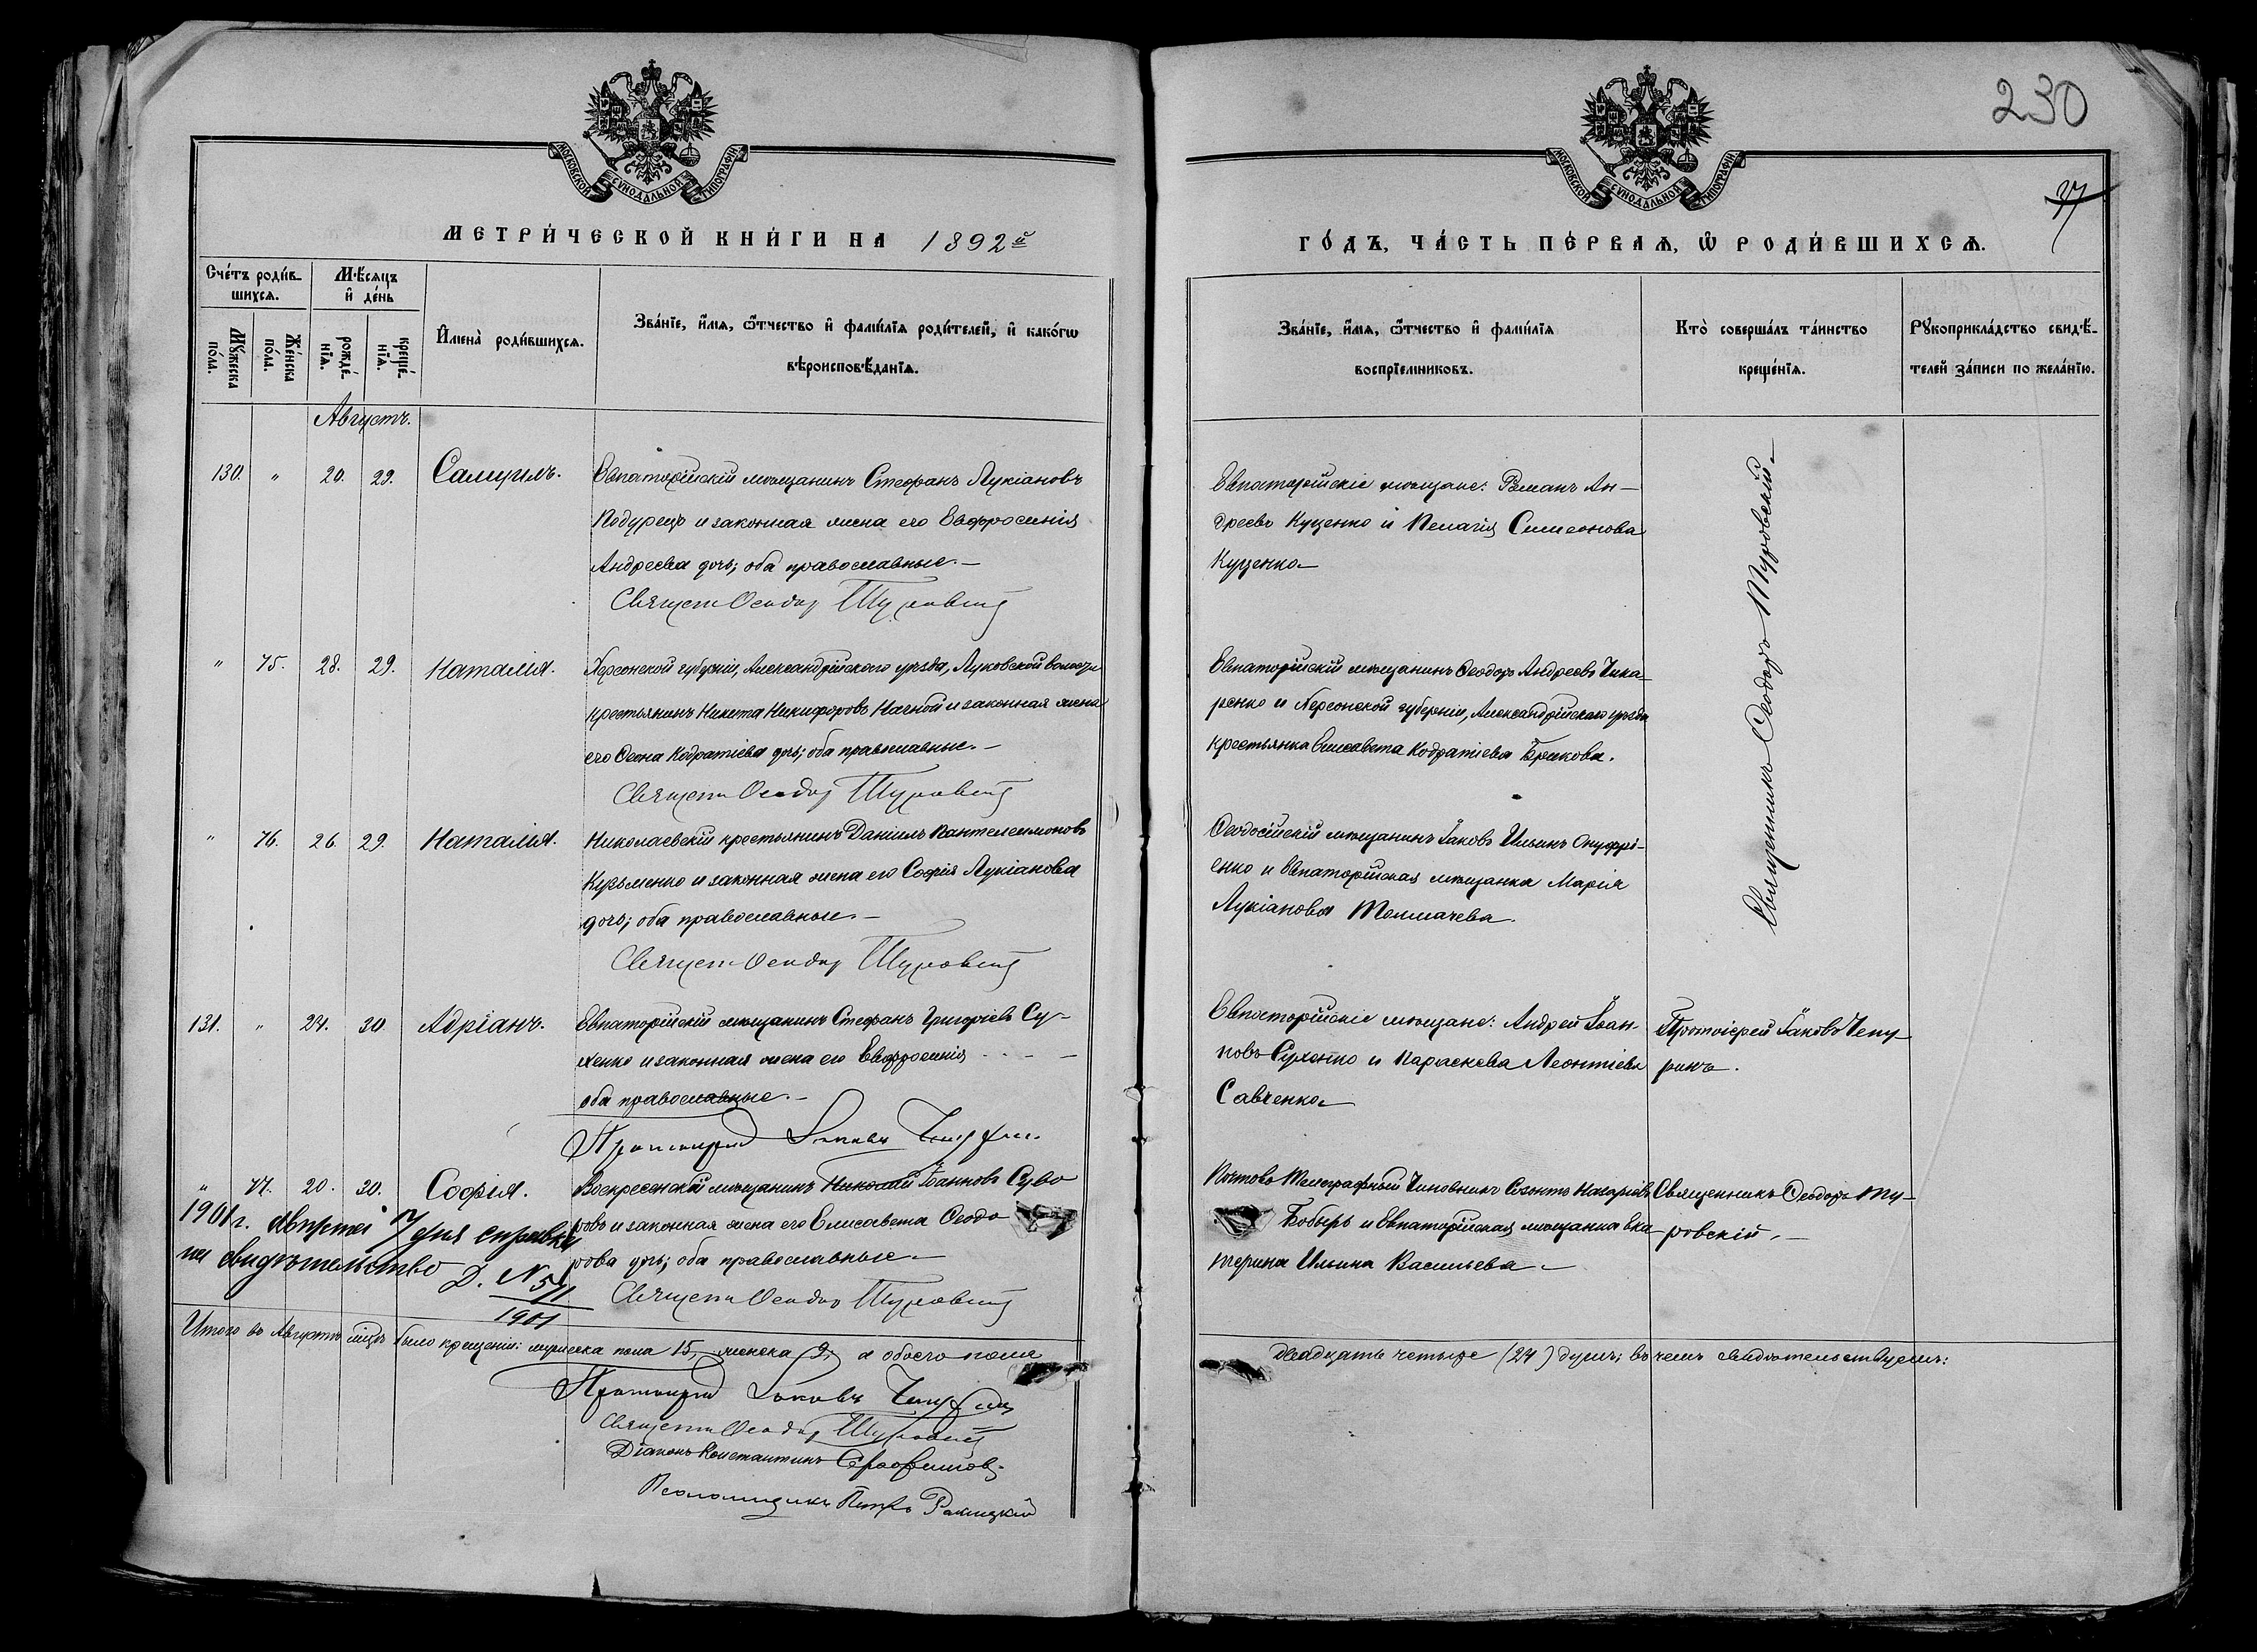 230
27
МОСКОВСКОЙ СѴНОДАЛЬНОЙ ТИПОГРАФІИ
МОСКОВСКОЙ СѴНОДАЛЬНОЙ ТИПОГРАФІИ
МЕТРИ́ЧЕСКОЙ КНИ́ГИ НА 1892й
ГО́ДЪ, ЧА́СТЬ ПЕ́РВАѦ, Ѡ҆ РОДИ́ВШИХСѦ.
Сче́тъ роди́в-
шихсѧ.
Мꙋ́жеска
по́ла.
Же́нска
по́ла.
Мѣ́сѧцъ
и҆ де́нь
рожде́-
нїѧ.
креще́-
нїѧ.
И҆мена̀ роди́вшихсѧ.
Зва́нїе, и҆́мѧ, ѻ҆́тчество и҆ фами́лїѧ роди́телей, и҆ како́гѡ
вѣроисповѣ́данїѧ.
Зва́нїе, и҆́мѧ, ѻ҆́тчество и҆ фами́лїѧ
воспрїемниковъ.
Кто̀ соверша́лъ та́инство
креще́нїѧ.
Рꙋкоприкла́дство свидѣ́-
телей за́писи по жела́нїю.
Августъ.
130. " 20. 29. Самуилъ.
Евпаторійскій мѣщанинъ Стефанъ Лукіановъ
Кодурецъ и законная жена его Евфросинія
Андреева дочь; оба православные.—
Священ Ѳеодор Туровскій
Евпаторійскіе мѣщане: Романъ Ан-
дреевъ Куценко и Пелагія Симеонова
Куценко.
Священникъ Ѳеодоръ Туровскій
" 75. 28. 29. Наталія.
Херсонской губерніи, Александрійского уѣзда, Луковской волости
крестьянинъ Никита Никифоровъ Начной и законная жена
его Ѳеона Кодратіева дочь; оба православные.—
Священ Ѳеодор Туровскій
Евпаторійскій мѣщанинъ Ѳеодоръ Андреевъ Чика-
ренко и Херсонской губерніи, Александрійскаго уѣзда
крестьянка Елисавета Кодратіева Брикова.
" 76. 26. 29. Наталія.
Николаевскій крестьянинъ Даніилъ Пантелеимоновъ
Кузьменко и законная жена его Софія Лукіанова
дочь; оба православные.—
Священ Ѳеодор Туровскій
Ѳеодосійскій мѣщанинъ Іаковъ Ильинъ Онуфрі-
енко и Евпаторійская мѣщанка Марія
Лукіанова Толмачева.
131. " 24. 30. Адріанъ.
Евпаторійскій мѣщанинъ Стефанъ Григоріевъ Су-
хенко и законная жена его Евфросинія - - - -
оба православные.—
Протоіерей Іаковъ Чепурин
Евпаторійскіе мѣщане: Андрей Іоан-
новъ Сухенко и Параскева Леонтіева
Савченко
Протоіерей Іаковъ Чепу-
ринъ.
" 77. 20. 30. Софія.
Воскресенскій мѣщанинъ Николай Іоанновъ Суво
ровъ и законная жена его Елисавета Ѳеодо
рова дочь; оба православные.—
Священ Ѳеодор Туровскій
Почтово Телеграфный Чиновникъ Созонтъ Назаріевъ
Бобырь и Евпаторійская мѣщанка Ека-
терина Ильина Васильева.—
Священникъ Ѳеодоръ Ту-
ровскій.—
1901 г. августа 17 дня справка
на свидѣтельство Д. N 511
1901
Итого въ Августѣ м-цѣ было крещенія: мужеска пола 15, женска 9, а обоего пола
двадцать четыре (24) душъ; въ чемъ свидѣтельствуемъ:
Протоіерей Іаковъ Чепурин
Священ Ѳеодор Туровскій
Діаконъ Константинъ Серафимовъ.
Псаломщикъ Петръ Ракицкій